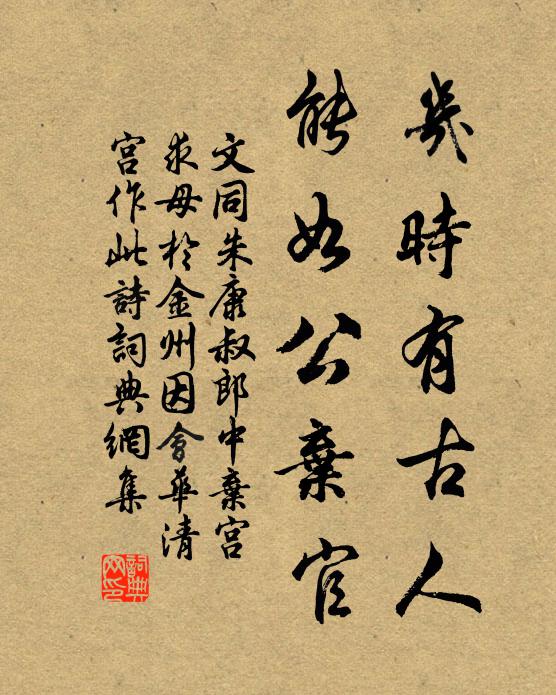 幾時有古人
能如公棄官
文同朱康叔郎中棄宮
求母於金州因會華清
宮作此詩詞典網集
詞典网印